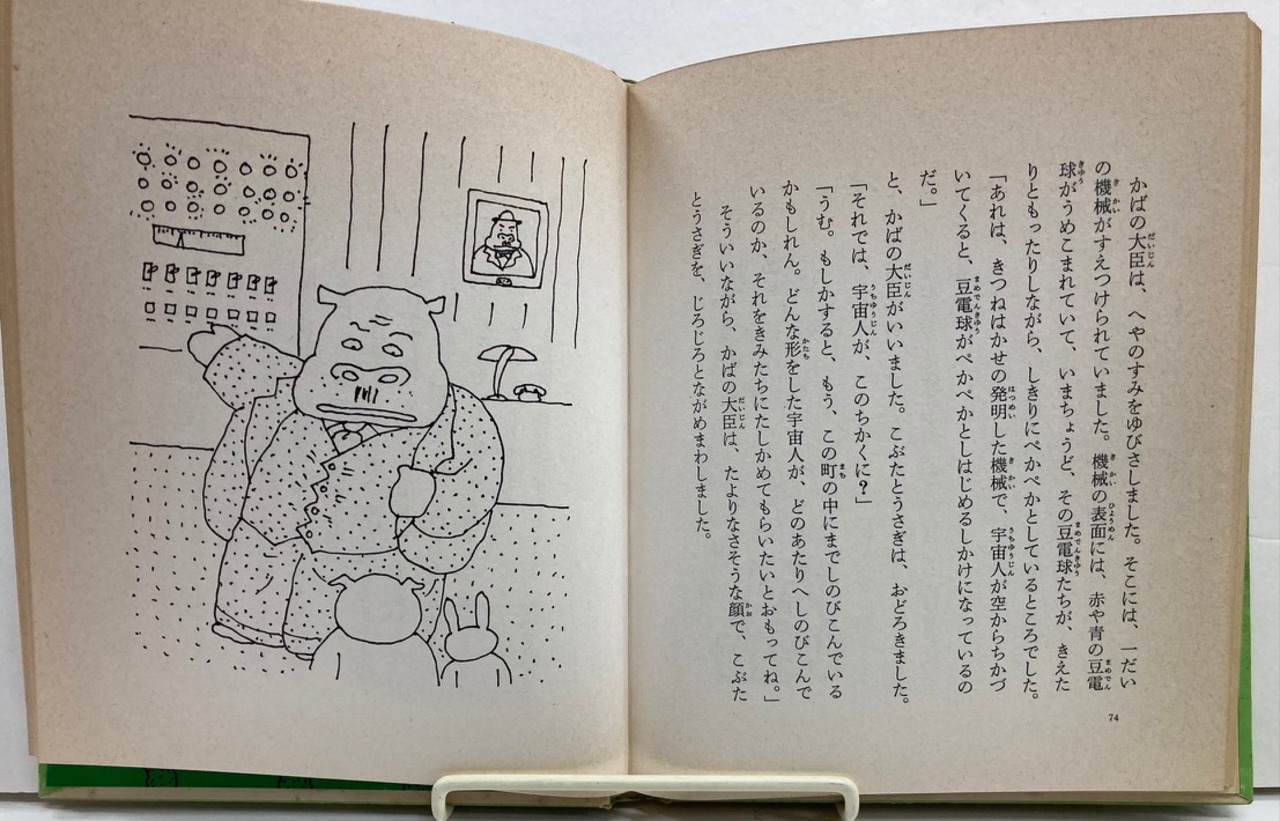 かばの大臣は、へやのすみをゆびさしました。そこには、一だい
の機械がすえつけられていました。機械の表面には、赤や青の豆電
球がうめこまれていて、いまちょうど、その豆電球たちが、きえた
りともったりしながら、しきりにぺかぺかとしているところでした。
「あれは、きつねはかせの発明した機械で、宇宙人が空からちかづ
いてくると、豆電球がぺかぺかとしはじめるしかけになっているの
だ。」
と、かばの大臣がいいました。こぶたとうさぎは、おどろきました。
「それでは、宇宙人が、このちかくに？」
「うむ。もしかすると、もう、この町の中にまでしのびこんでいる
かもしれん。どんな形をした宇宙人が、どのあたりへしのびこんで
いるのか、それをきみたちにたしかめてもらいたいとおもってね。」
そういいながら、かばの大臣は、たよりなさそうな顔で、こぶた
とうさぎを、じろじろとながめまわしました。
74